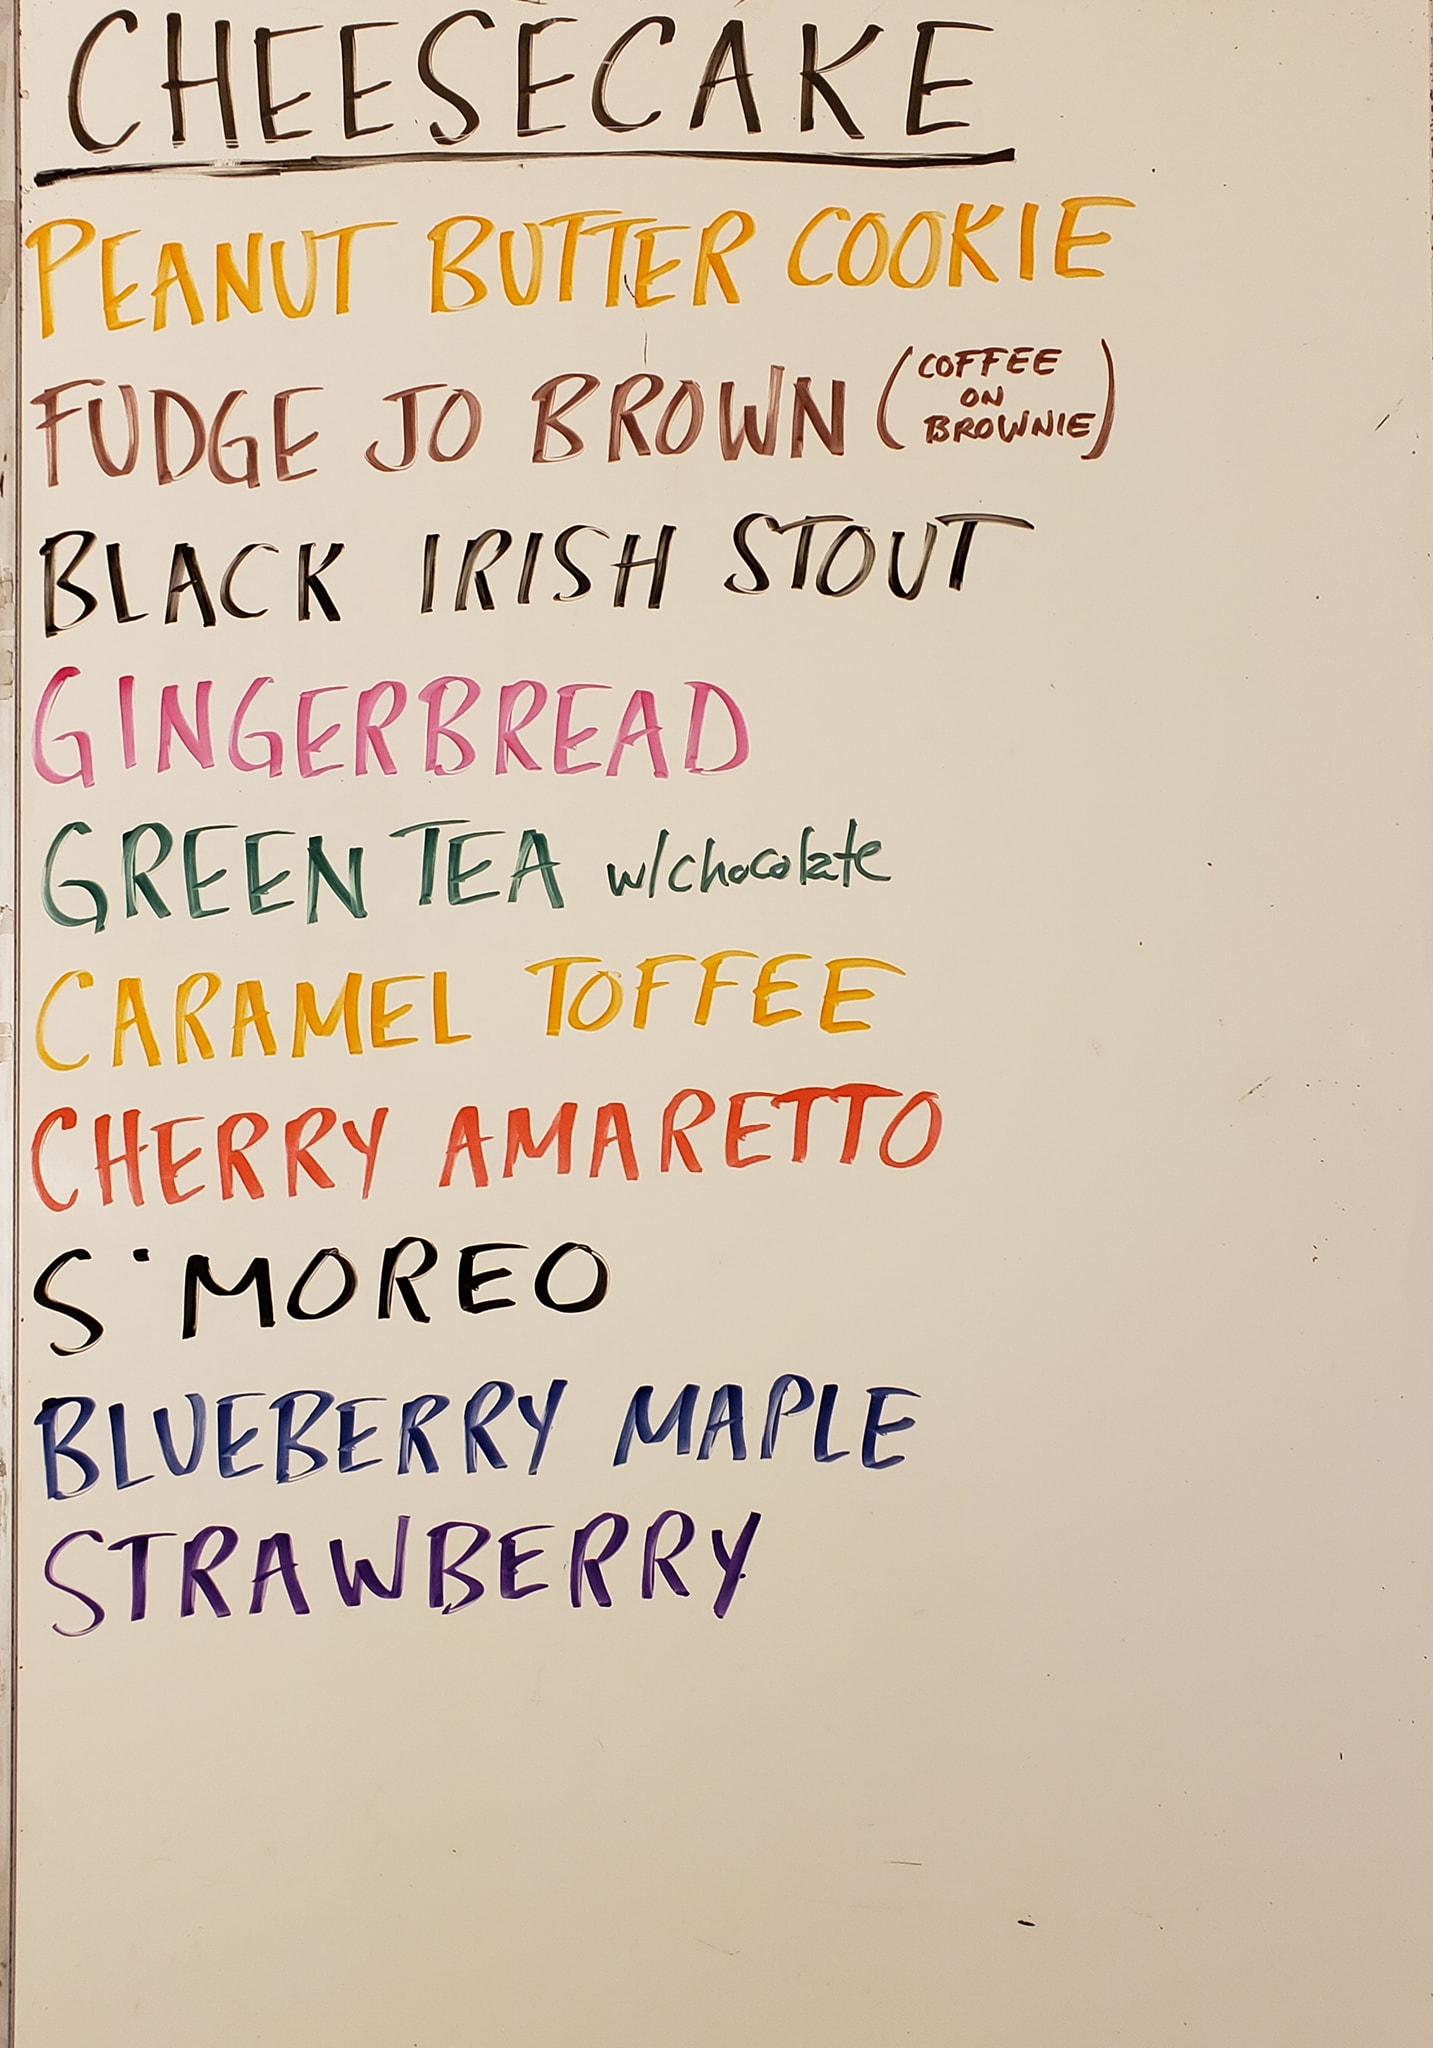 CHEESECAKE
PEANUT BUTTER COOKIE
FUDGE JO BROWN (COFFEE
ON
BROWNIE)
BLACK IRISH STOUT
GINGERBREAD
GREEN TEA w/chocolate
CARAMEL TOFFEE
CHERRY AMARETTO
S'MOREO
BLUEBERRY MAPLE
STRAWBERRY